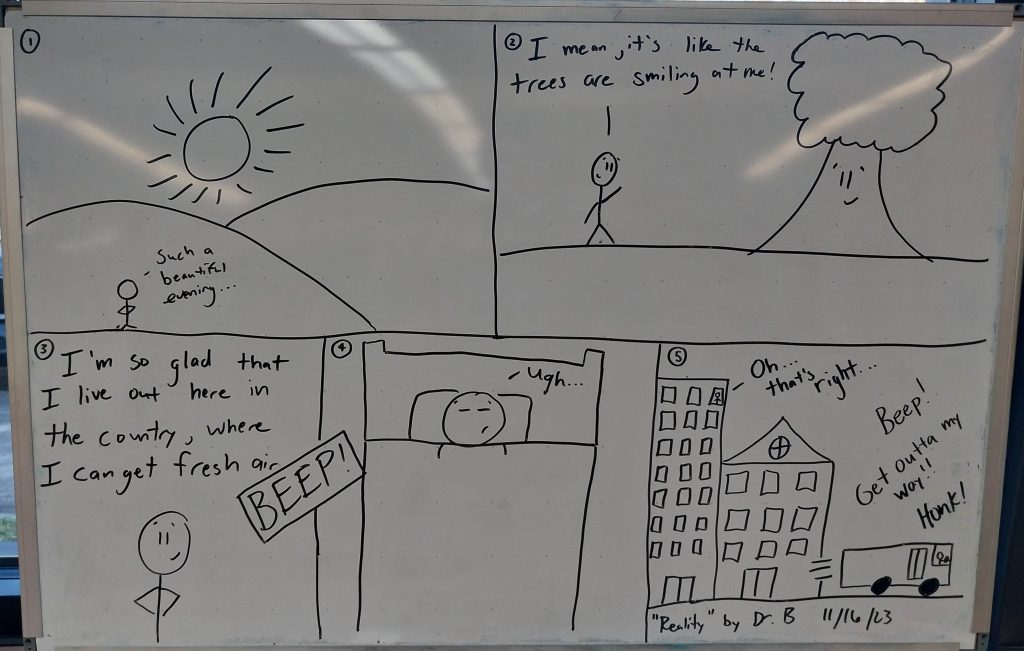 ①
Such a
beautiful
evening...
②
I mean, it's like the
trees are smiling at me!
③
I'm so glad that
I live out here in
the country, where
I can get fresh air
BEEP!
④
Ugh...
⑤
Oh...
that's right...
Beep!
Get outta my
way!!
Honk!
"Reality" by Dr. B 11/16/23